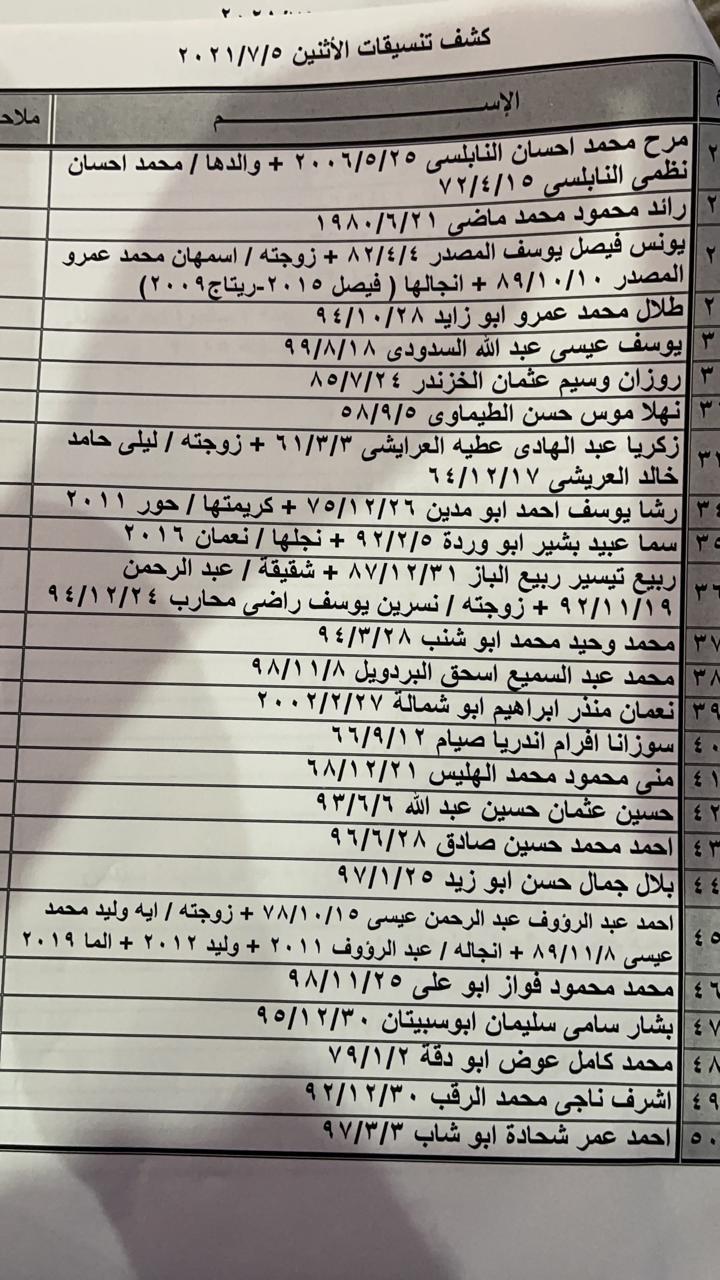 كشف تنسيقات الأثنين ٢٠٢١/٧/٥
الإســـــم
ملاحـ
مرح محمد احسان النابلسى ٢٠٠٦/٥/٢٥ + والدها / محمد احسان
نظمى النابلسى ٧٢/٤/١٥
رائد محمود محمد ماضى ١٩٨٠/٦/٢١
يونس فيصل يوسف المصدر ٨٢/٤/٤ + زوجته / اسمهان محمد عمرو
المصدر ٨٩/١٠/١٠ + انجالها ( فيصل ٢٠١٥-ريتاج٢٠٠٩)
طلال محمد عمرو ابو زايد ٩٤/١٠/٢٨
يوسف عيسى عبد الله السدودى ٩٩/٨/١٨
روزان وسيم عثمان الخزندر ٨٥/٧/٢٤
نهلا موس حسن الطيماوى ٥٨/٩/٥
زكريا عبد الهادى عطيه العرايشى ٦١/٣/٣ + زوجته / ليلى حامد
خالد العريشى ٦٤/١٢/١٧
٣٤ رشا يوسف احمد ابو مدين ٧٥/١٢/٢٦ + كريمتها / حور ٢٠١١
٣٥ سما عبيد بشير ابو وردة ٩٢/٢/٥ + نجلها / نعمان ٢٠١٦
٣٦ ربيع تيسير ربيع الباز ٨٧/١٢/٣١ + شقيقة / عبد الرحمن
٩٢/١١/١٩ + زوجته / نسرين يوسف راضى محارب ٩٤/١٢/٢٤
٣٧ محمد وحيد محمد ابو شنب ٩٤/٣/٢٨
٣٨ محمد عبد السميع اسحق البردويل ٩٨/١١/٨
٣٩ نعمان منذر ابراهيم ابو شمالة ٢٠٠٢/٢/٢٧
٤٠ سوزانا افرام اندريا صيام ٦٦/٩/١٢
٤١ منى محمود محمد الهليس ٦٨/١٢/٢١
٤٢ حسين عثمان حسين عبد الله ٩٣/٦/٦
٤٣ احمد محمد حسين صادق ٩٦/٦/٢٨
٤٤ بلال جمال حسن ابو زيد ٩٧/١/٢٥
٤٥ احمد عبد الرؤوف عبد الرحمن عيسى ٧٨/١٠/١٥ + زوجته / ايه وليد محمد
عيسى ٨٩/١١/٨ + انجاله / عبد الرؤوف ٢٠١١ + وليد ٢٠١٢ + الما ٢٠١٩
٤٦ محمد محمود فواز ابو على ٩٨/١١/٢٥
٤٧ بشار سامى سليمان ابوسبيتان ٩٥/١٢/٣٠
٤٨ محمد كامل عوض ابو دقة ٧٩/١/٢
٤٩ اشرف ناجى محمد الرقب ٩٢/١٢/٣٠
٥٠ احمد عمر شحادة ابو شاب ٩٧/٣/٣